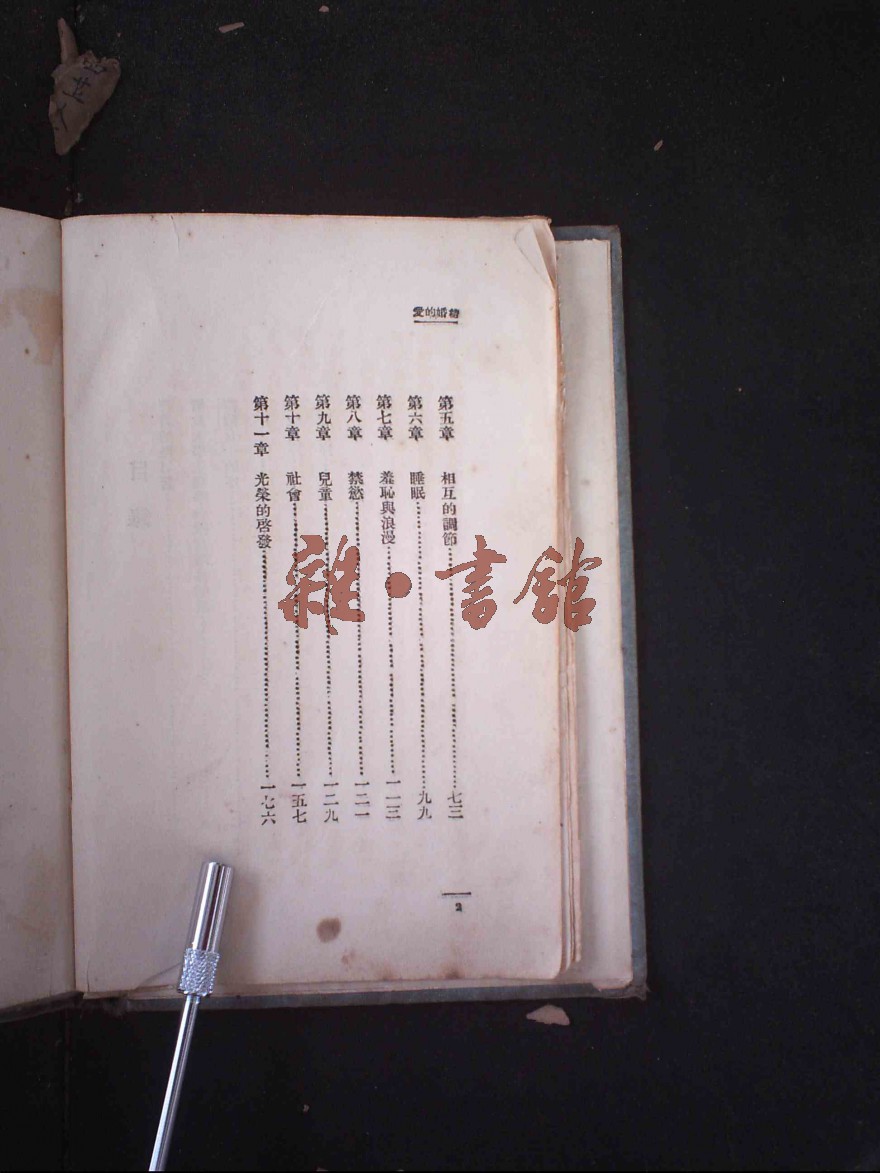 愛的婚結
第五章 相互的調節 七三
第六章 睡眠 九九
第七章 羞恥與浪漫 一一三
第八章 禁慾 一二一
第九章 兒童 一二九
第十章 社會 一五七
第十一章 光榮的啓發 一七六
2
雜·書館
目錄